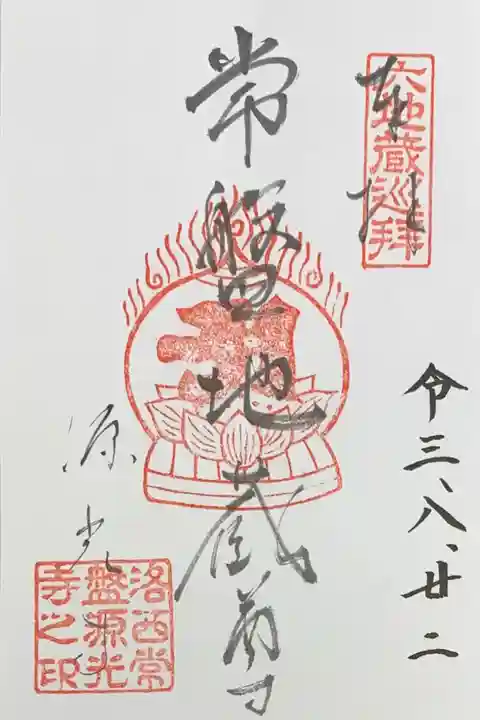 奉拝
六地蔵巡拝
令三、八、廿二
常盤地蔵尊
源光寺
洛西常
盤源光
寺之印